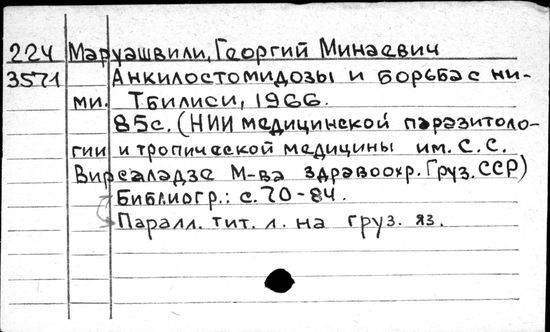 224 Маруашвили, Георгий Минаевич
3571 Анкилостомидозы и борьба с ни-
ми. Тбилиси, 1966.
85с. (НИИ медицинской паразитоло-
гии и тропической медицины им. С. С.
Вирсаладзе М-ва здравоохр. Груз. ССР)
Библиогр.: с. 70-84.
Паралл. тит. л. на груз. яз.